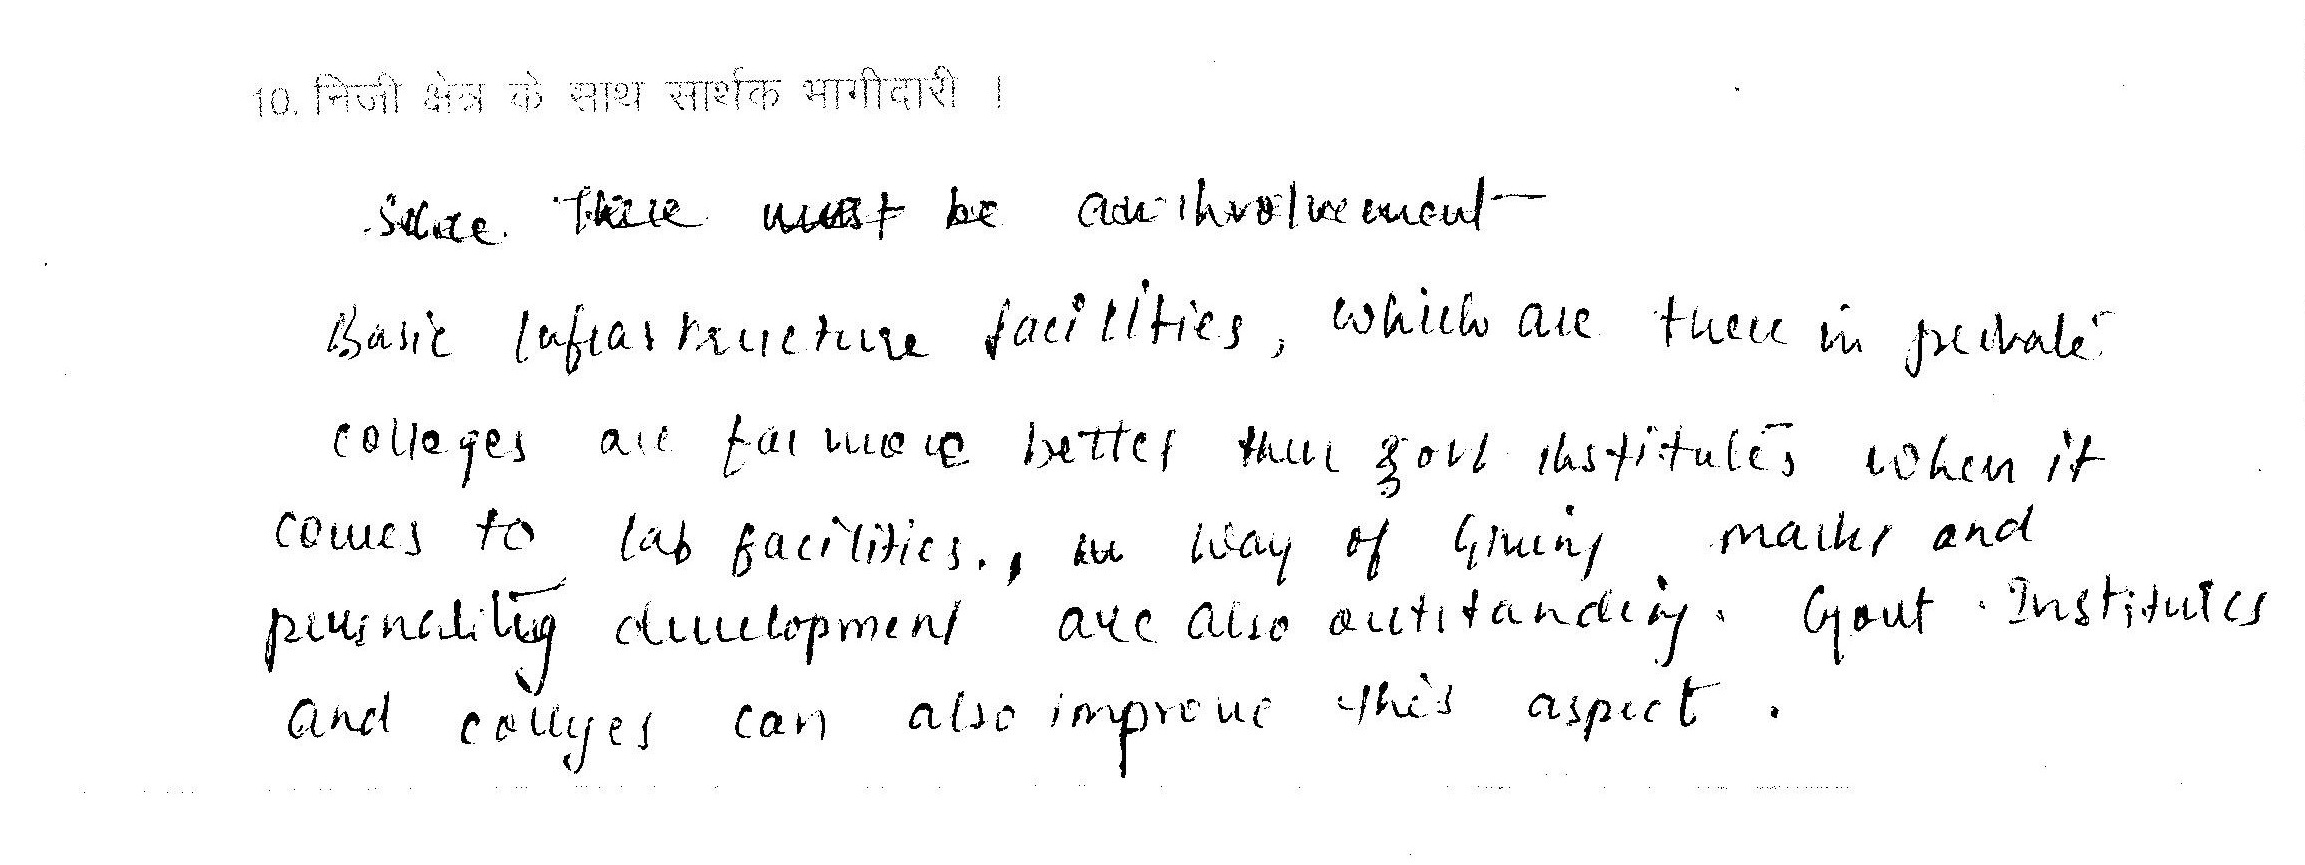 10. निजी क्षेत्र के साथ सार्थक भागीदारी ।
There must be an involvement
Basic Infrastructure facilities, which are there in private
colleges are far more better then govt institutes when it
comes to lab facilities., in way of Giving marks and
personality development are also outstanding. Govt. Institutes
and collges can also improve this aspect.